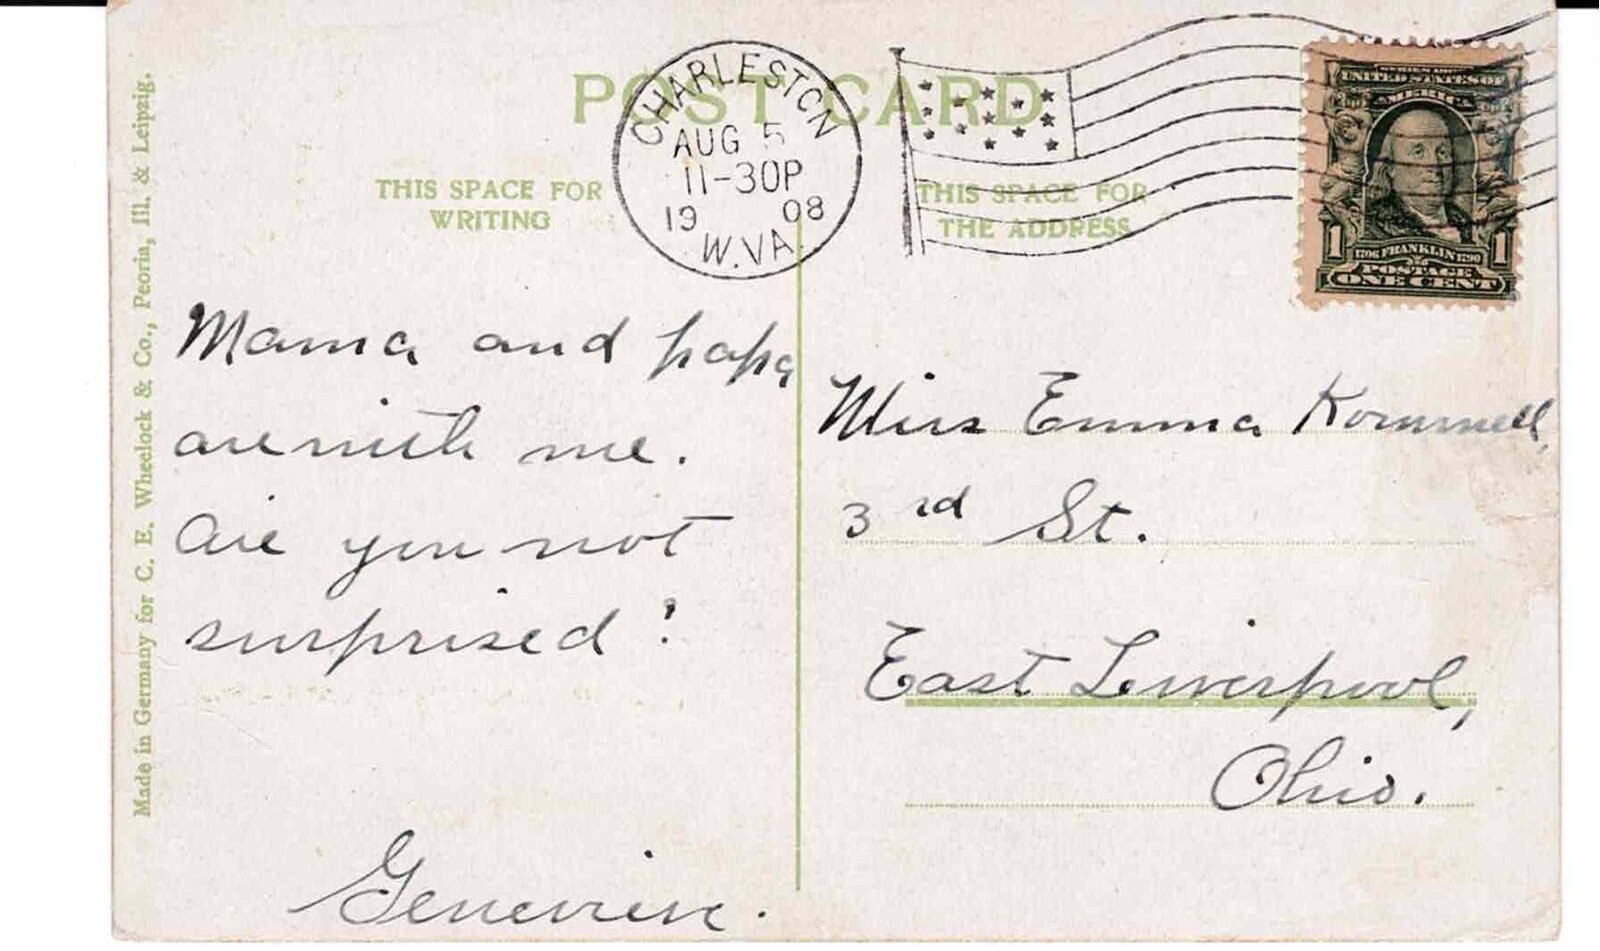 POST CARD
CHARLESTON
AUG 5
11-30P
19 08
W.VA.
THIS SPACE FOR
WRITING
THIS SPACE FOR
THE ADDRESS
UNITED STATES OF
AMERICA
1 1
1706 FRANKLIN 1790
POSTAGE
ONE CENT
Made in Germany for C. E. Wheelock & Co., Peoria, Ill. & Leipzig.
Mama and papa
are with me.
Are you not
surprised?
Genevieve.
Miss Emma
3rd St.
East Liverpool,
Ohio.